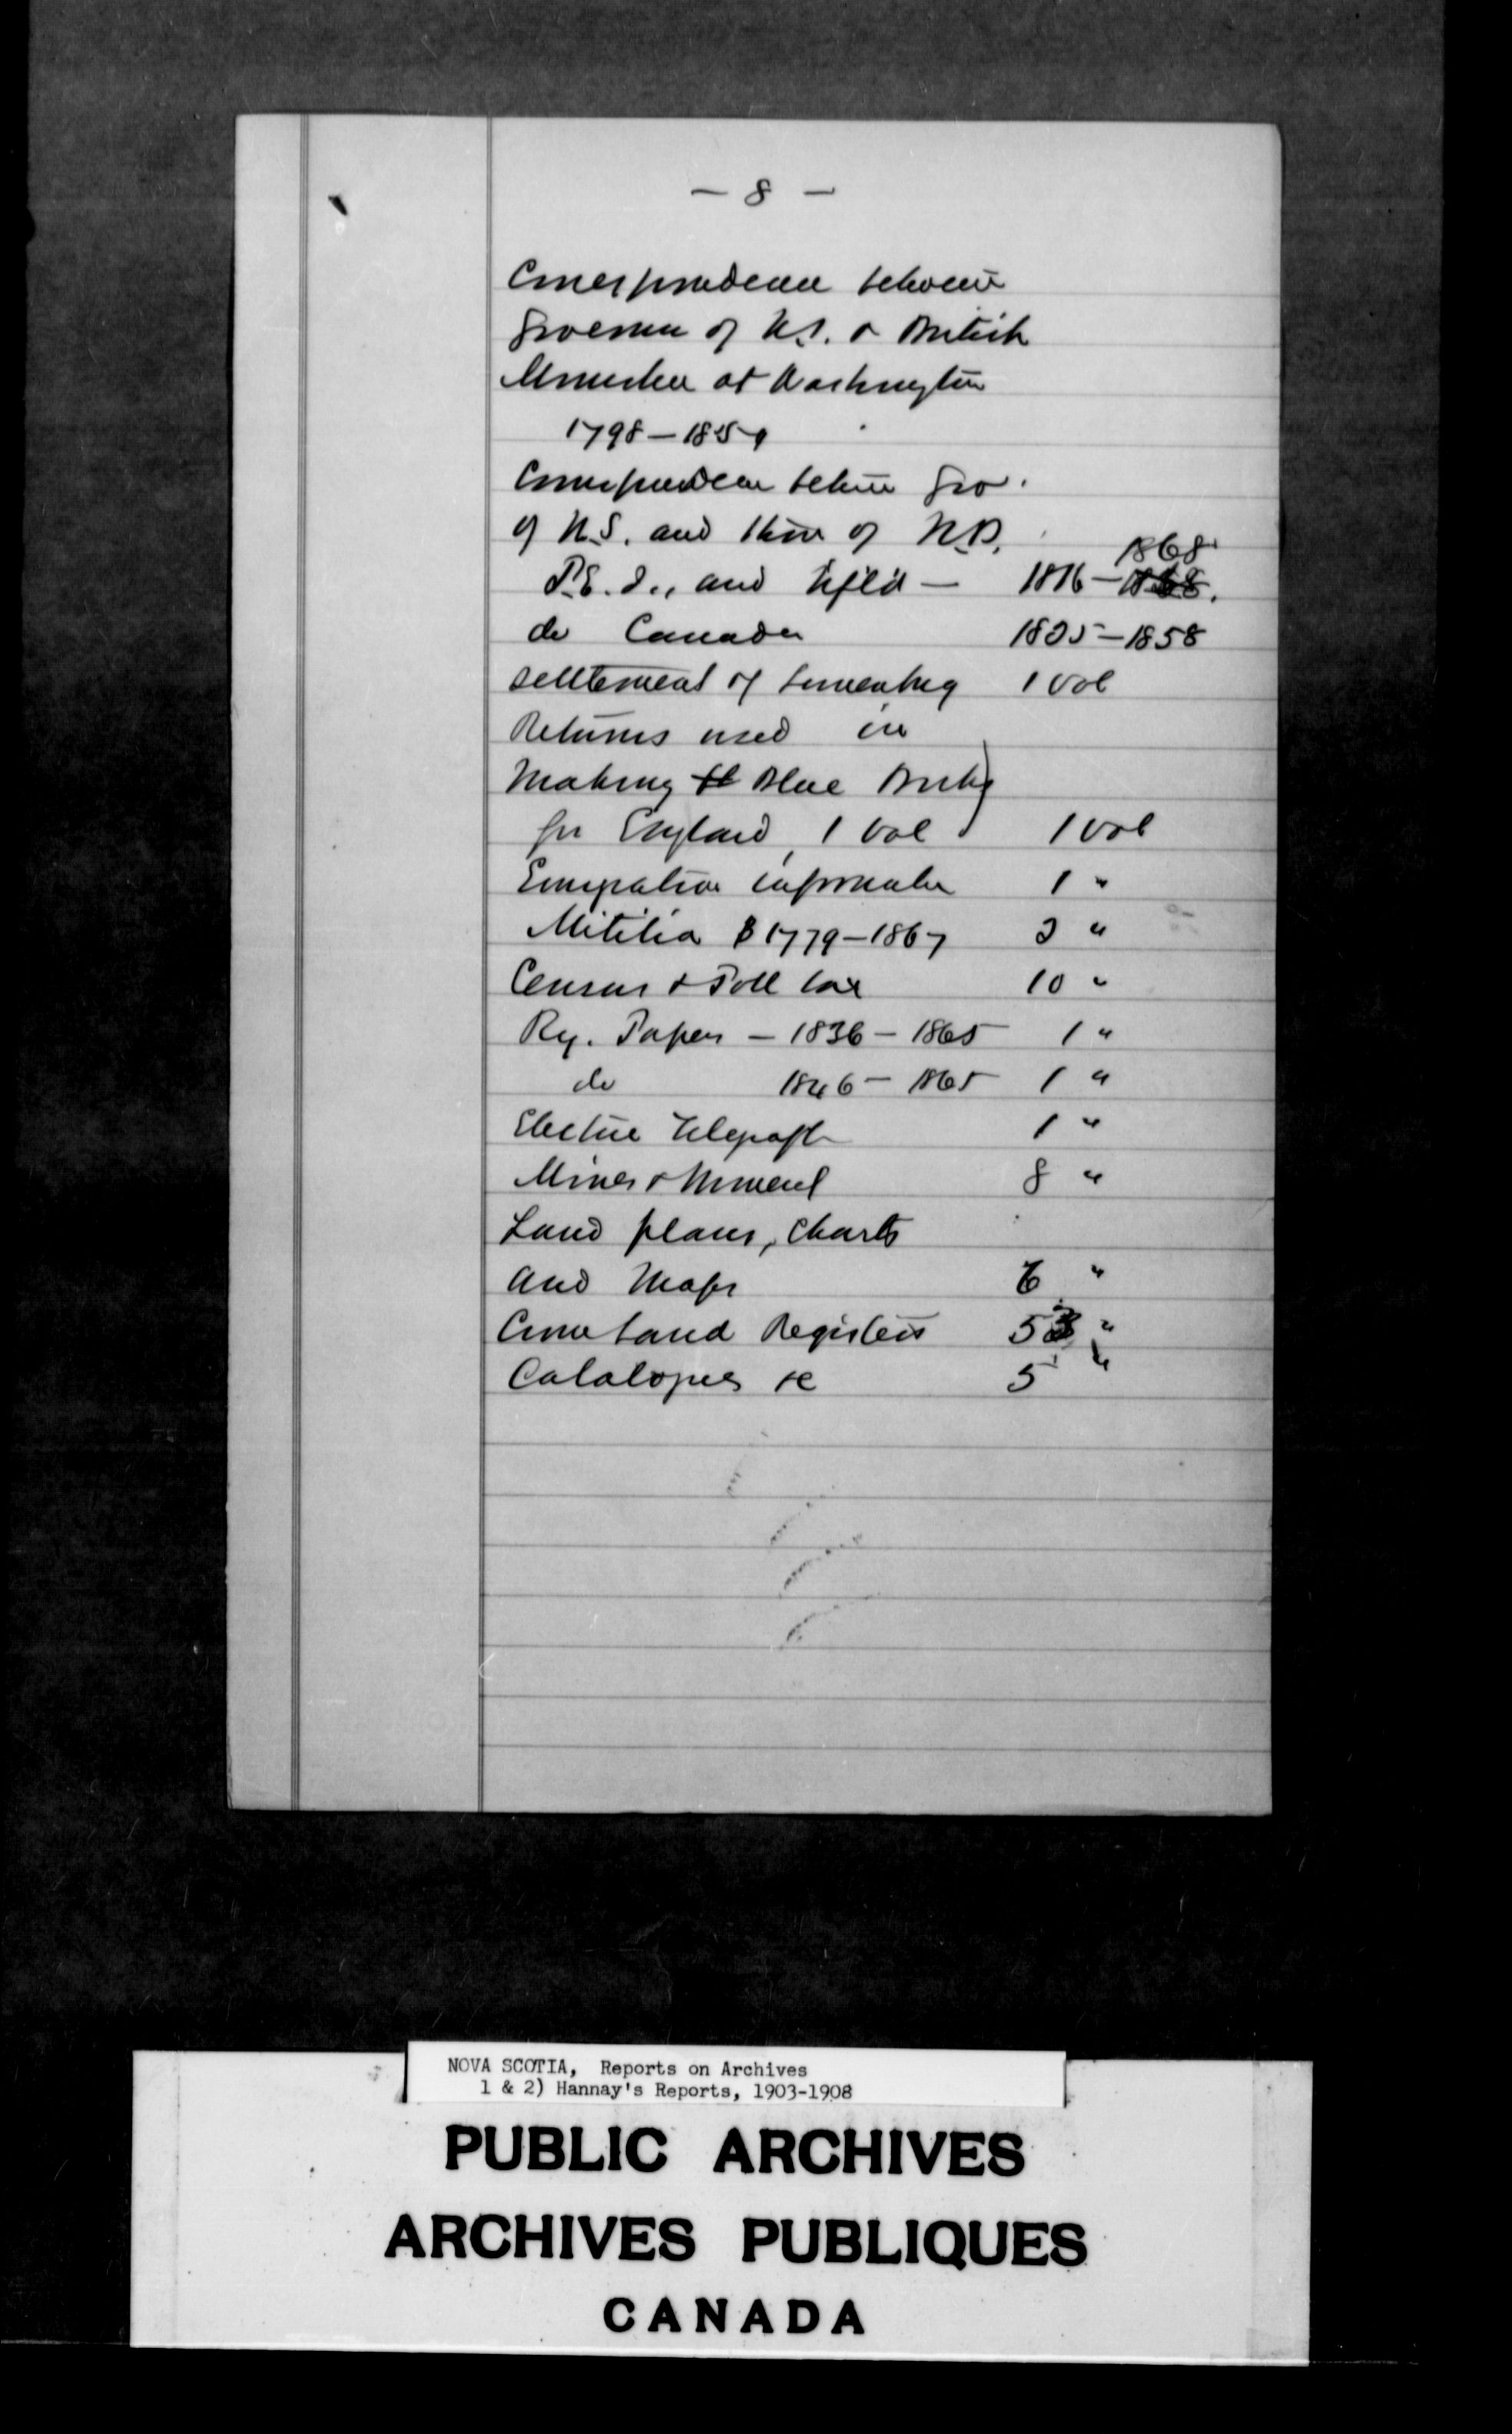 — 8 —
Correspondence between
Governor of N.S. & British
Minister at Washington
1798 – 1854
Correspondence between Gov.
of N.S. and those of N.B.
1868
P.E.I., and Nfld — 1816 – 1868.
do Canada 1805 – 1858
Settlement of Lunenburg 1 vol
Returns used in
making Blue Books
for England, 1 vol 1 vol
Emigration information 1 "
Militia 1779 – 1867 3 "
Census & Poll tax 10 "
Ry. Papers – 1836 – 1865 1 "
do 1846 – 1865 1 "
Electric Telegraph 1 "
Mines & Mineral 8 "
Land plans, Charts
and Maps 6 "
Crown Land Registers 53 "
Catalogues &c 5 "
NOVA SCOTIA, Reports on Archives
1 & 2) Hannay's Reports, 1903-1908
PUBLIC ARCHIVES
ARCHIVES PUBLIQUES
CANADA